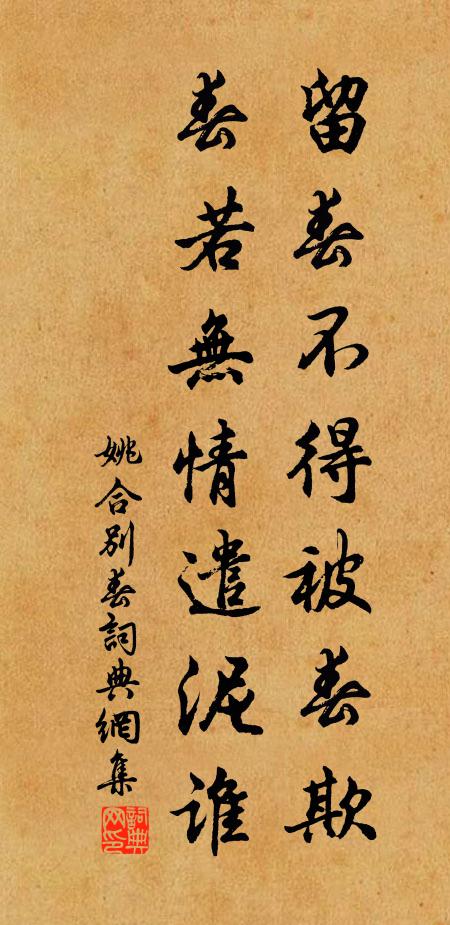 留春不得被春欺
春若無情遣泥誰
姚合別春詞典網集
詞典網印